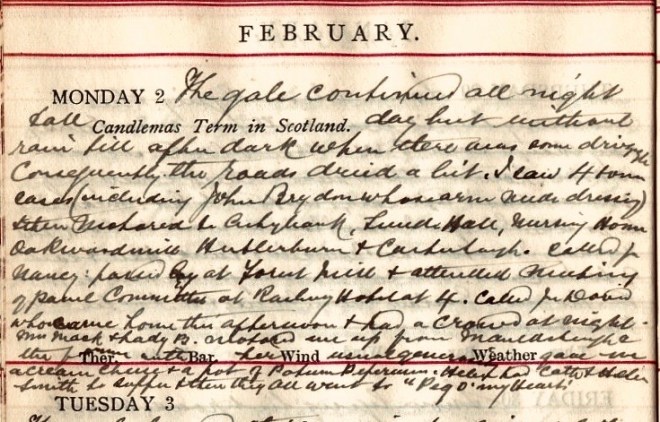 FEBRUARY.
MONDAY 2 The gale continued all night
& all Candlemas Term in Scotland. day but without
rain till after dark when there was some drizzle
Consequently the roads dried a bit. I saw 4 town
cases (including John Brydon whose arm needs dressing)
& then motored to Hall, Nursing Home
Oakwoodmill Hutlerburn & Called for
Nancy: passed by at Forest Mill & attended Meeting
of Panel Committee at Railway Hotel at 4. Called for David
who came home this afternoon & had a crowd at night.
Mrs Mack & Lady B. me up from
the Ther. Bar. her Wind usual Weather gave me
a cream cheese & a pot of . Helen had Cath & Helen
Smith to supper & then they all went to "Peg o' my Heart"
TUESDAY 3